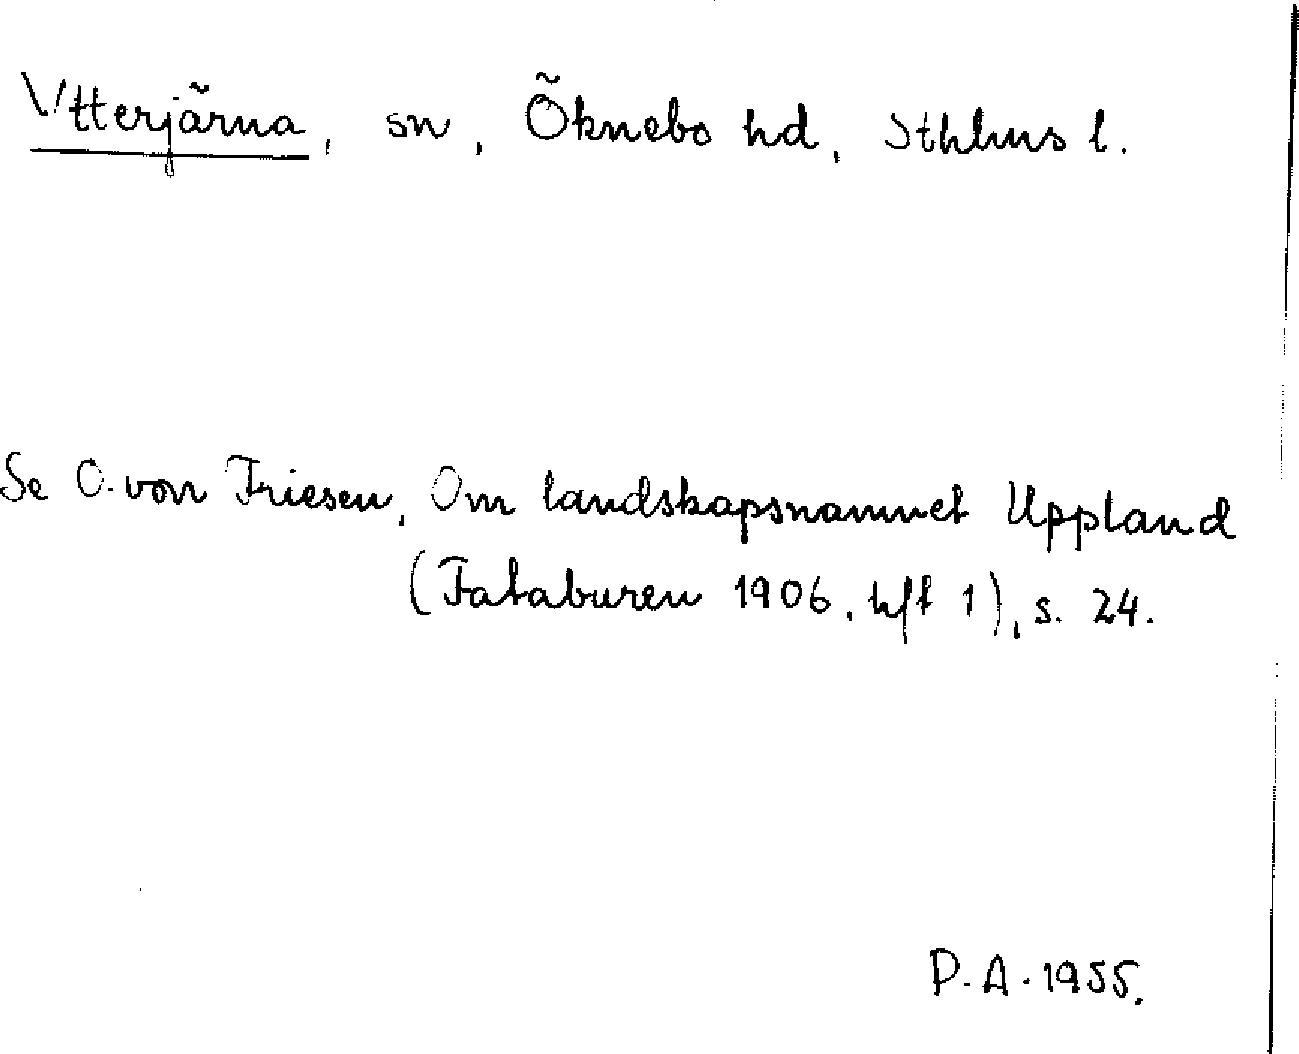 Ytterjärna, sn, Öknebo hd, Sthlms l.
Se O. von Friesen, Om landskapsnamnet Uppland
(Fataburen 1906, hft 1), s. 24.
P.A. 1955.